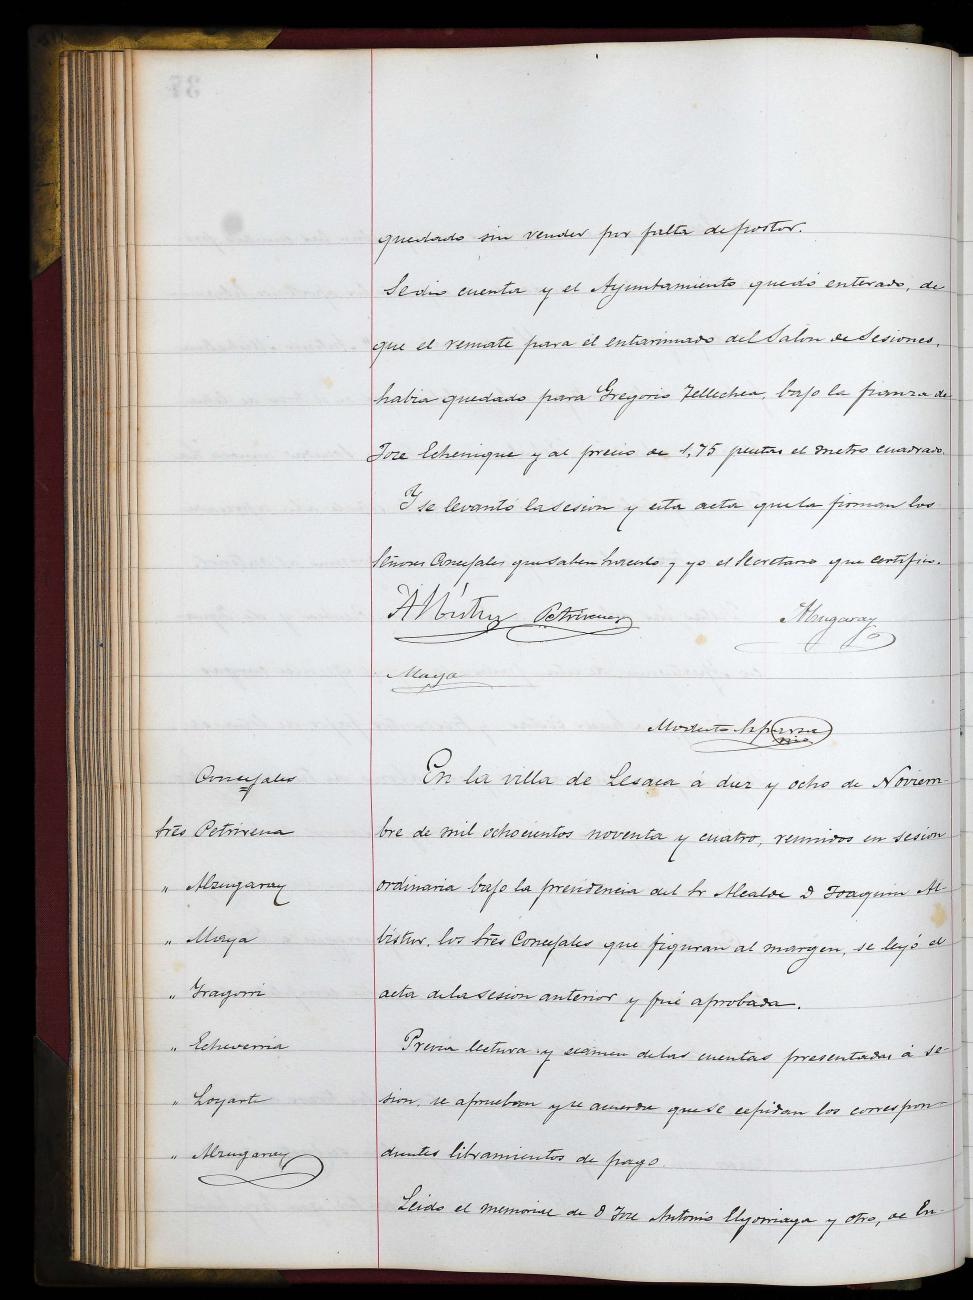 quedado sin vender por falta de postor.
Se dio cuenta y el Ayuntamiento quedó enterado, de
que el remate para el entarimado del Salon de Sesiones,
habia quedado para Gregorio Tellechea, bajo la fianza de
Jose Echenique y al precio de 1,75 pesetas el metro cuadrado.
Y se levantó la sesion y esta acta que la firman los
Señores Concejales que saben hacerlo y yo el Secretario que certifico.
Petrirena Alzugaray
Maya
Modesto
Concejales
Sres Petrirena
" Alzugaray
" Maya
" Yragorri
" Echeverria
" Loyarte
" Alzugaray
En la villa de Lesaca á diez y ocho de Noviem-
bre de mil ochocientos noventa y cuatro, reunidos en sesion
ordinaria bajo la presidencia del Sr Alcalde D Joaquin Al-
bistur, los Sres Concejales que figuran al margen, se leyó el
acta de la sesion anterior y fué aprobada.
Previa lectura y examen de las cuentas presentadas á se-
sion, se aprueban y se acuerda que se expidan los correspon-
dientes libramientos de pago.
Leido el memorial de D Jose Antonio Elgorriaga y otro, de En-